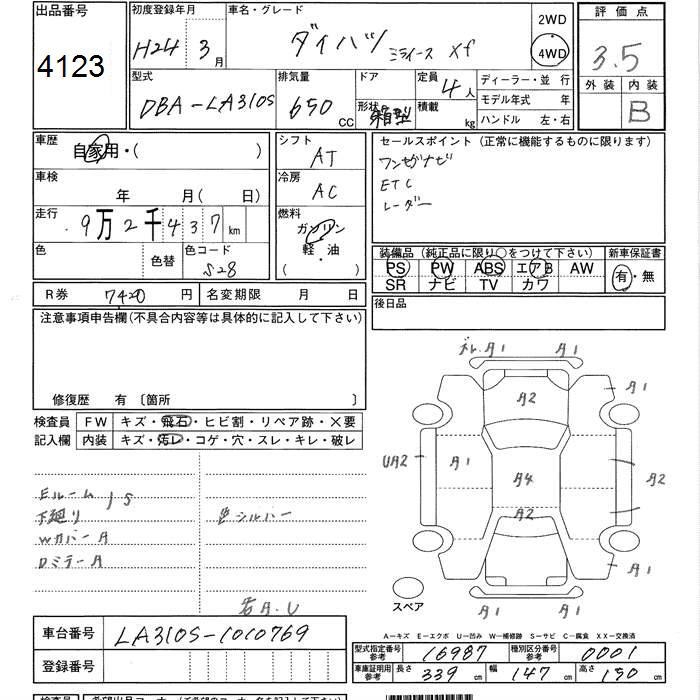 出品番号
4123
初度登録年月
H24 3月
車名・グレード
ダイハツ ミライース Xf
2WD
4WD
評価点
3.5
外装 内装
B
型式
DBA-LA310S
排気量
650 CC
ドア
形状 箱型
定員 4人
積載 kg
ディーラー・並 行
モデル年式 年
ハンドル 左・右
車歴
自家用・( )
車検
年 月( 日)
走行
9万2千437km
色
色替
色コード
S28
シフト
AT
冷房
AC
燃料
ガソリン
軽・油
( )
セールスポイント(正常に機能するものに限ります)
ワンセグナビ
ETC
レーダー
装備品(純正品に限り○をつけて下さい)
PS PW ABS エアB AW
SR ナビ TV カワ
新車保証書
有・無
R券 7420 円
名変期限 月 日
後日品
注意事項申告欄(不具合内容等は具体的に記入して下さい)
修復歴 有 〔箇所 〕
検査員
記入欄
FW キズ・飛石・ヒビ割・リペア跡・×要
内装 キズ・汚レ・コゲ・穴・スレ・キレ・破レ
Eルーム
下廻り
S
WカバーA
DミラーA
色シルバー
若A.U
A1 A1
A2
A1
UA2
A1
A4
A2
A2
A1
A1 A1
スペア
A-キズ E-エクボ U-凹み W-補修跡 S-サビ C-腐食 XX-交換済
車台番号 LA310S-1010769
登録番号
型式指定番号
参考
16987
種別区分番号
参考
0001
車庫証明用
参考
長さ 339 cm
幅 147 cm
高さ 150 cm